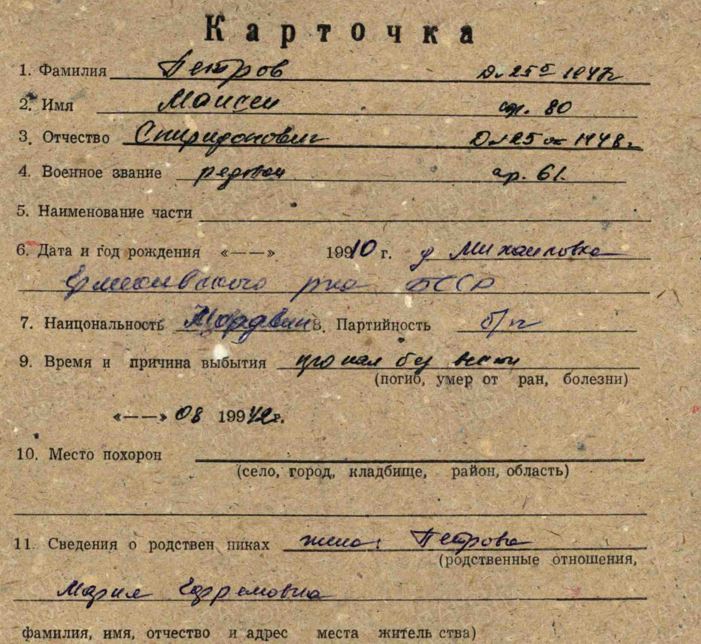 Карточка
1. Фамилия Петров Д. 25 1947г
2. Имя Маисеи ар. 80
3. Отчество Спиридонович Д. 25 1948г
4. Военное звание рядовои ар. 61.
5. Наименование части
6. Дата и год рождения «——» 19910 г. д Михаиловка
Ермекивского рна БССР
7. Наициональность Мордвин 8. Партийность б/п
9. Время и причина выбытия пропал без вести
(погиб, умер от ран, болезни)
«——» 08 19942г.
10. Место похорон
(село, город, кладбище, район, область)
11. Сведения о родствен никах жена: Петрова
(родственные отношения,
Мария Ефремовна
фамилия, имя, отчество и адрес места житель ства)